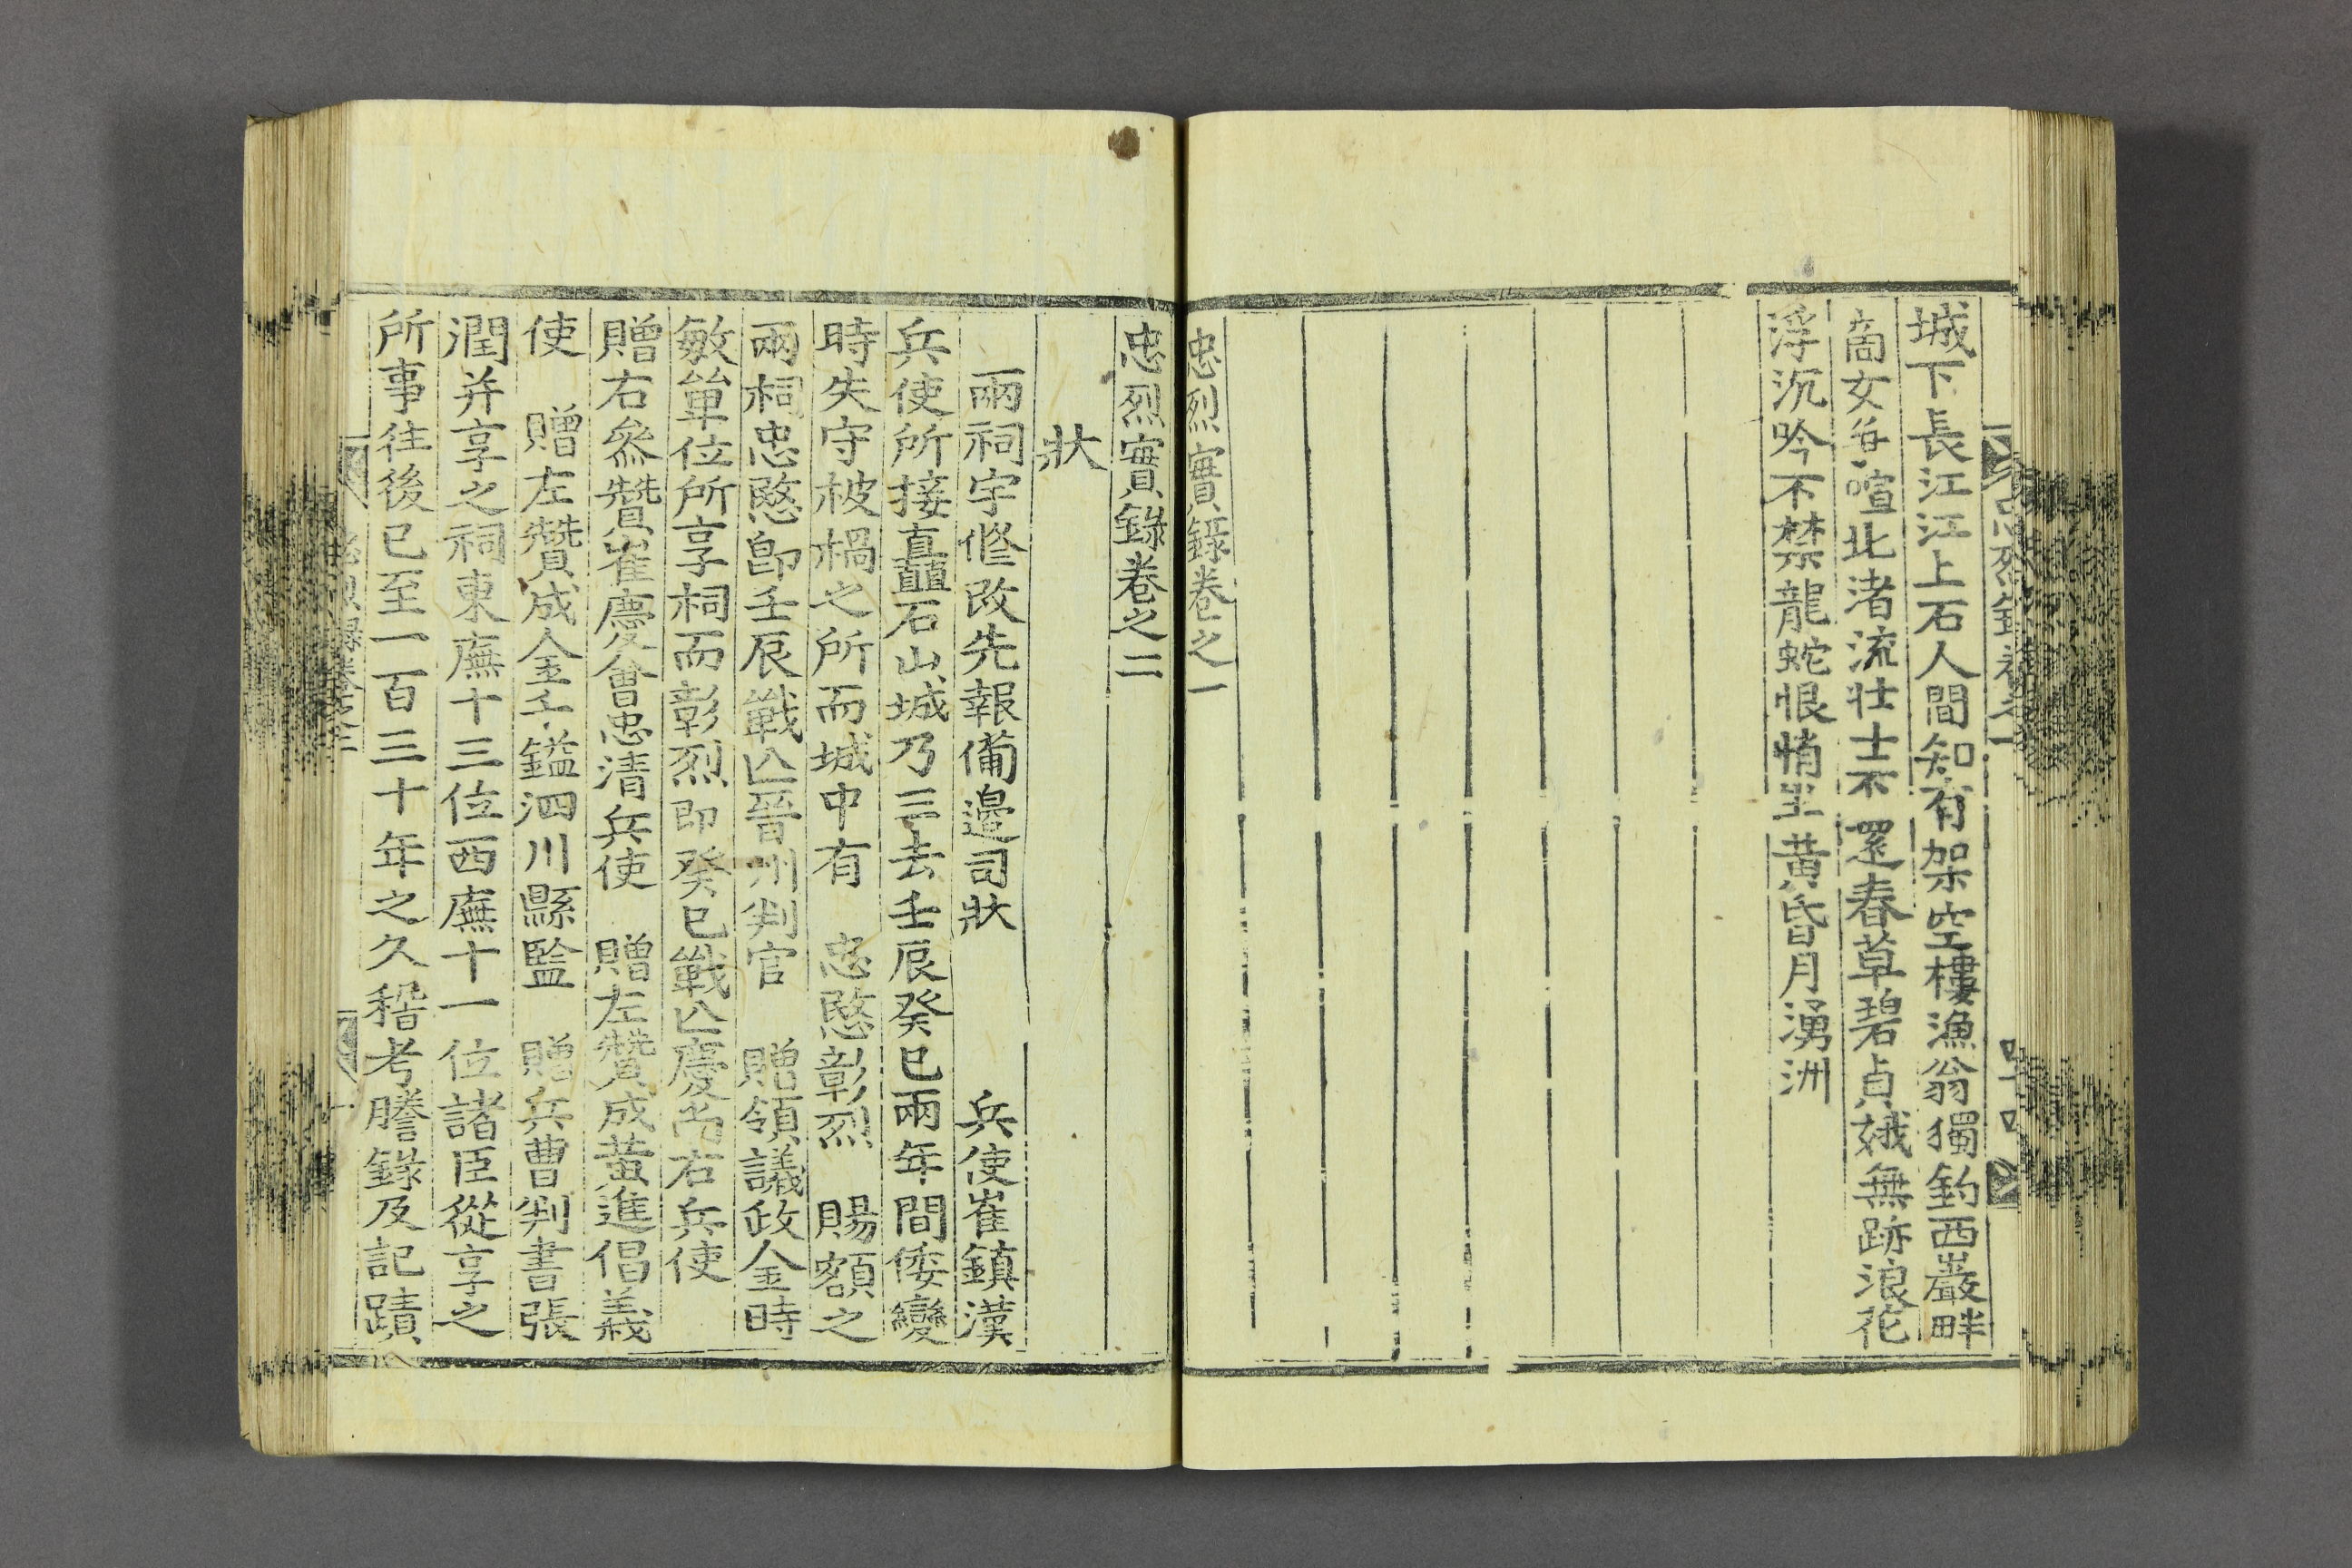 城下長江江上石人間知有架空樓漁翁獨釣西巖畔
商女爭喧北渚流壯士不還春草碧貞娥無跡浪花
浮沉吟不禁龍蛇恨悄坐黃昏月湧洲
忠烈實錄卷之一
忠烈實錄卷之二
狀
兩祠宇修改先報備邊司狀 兵使崔鎭漢
兵使所接直矗石山城乃三去壬辰癸巳兩年間倭變
時失守被禍之所而城中有 忠愍彰烈 賜額之
兩祠忠愍卽壬辰戰亾晉州判官 贈領議政金時
敏單位所享祠而彰烈即癸巳戰亾慶尙右兵使
贈右叅贊崔慶會忠清兵使 贈左贊成黃進倡義
使 贈左贊成金千鎰泗川縣監 贈兵曹判書張
潤并享之祠東廡十三位西廡十一位諸臣從享之
所事往後已至一百三十年之久稽考謄錄及記蹟